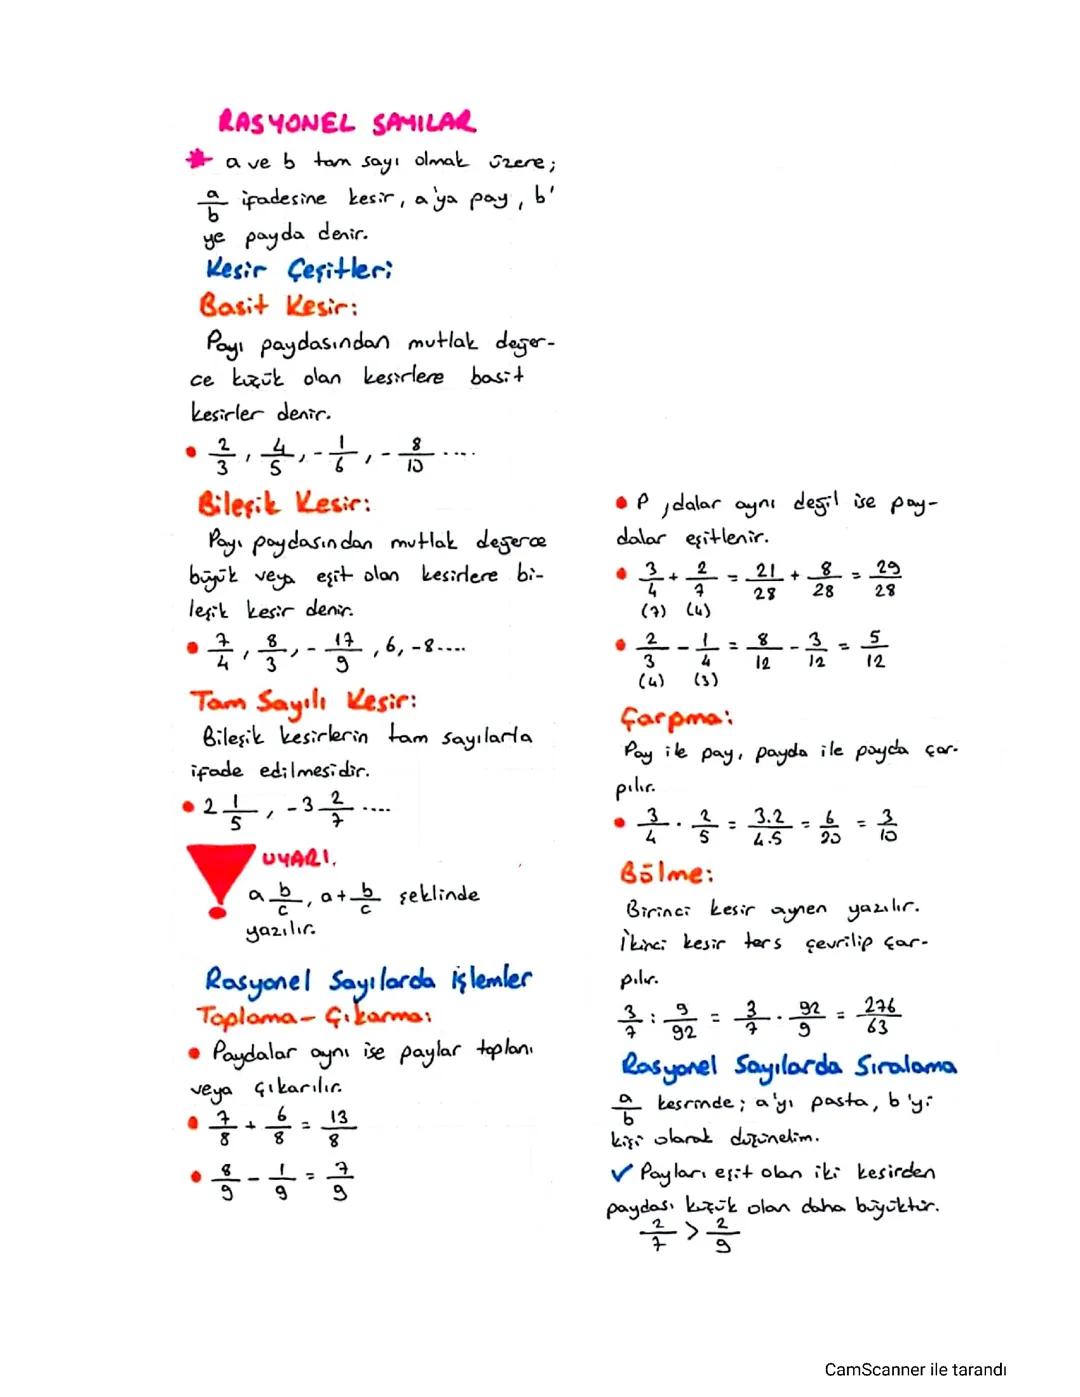 RASYONEL SAYILAR
* a ve b tam sayı olmak üzere;
a/b ifadesine kesir, a'ya pay, b'
ye payda denir.
Kesir Çeşitleri
Basit Kesir:
Payı paydasından mutlak değer-
ce küçük olan kesirlere basit
kesirler denir.
• 2/3, 4/5, -1/6, -8/10 ....
Bileşik Kesir:
Payı paydasından mutlak değerce
büyük veya eşit olan kesirlere bi-
leşik kesir denir.
• 7/4, 8/3, -17/9, 6, -8....
Tam Sayılı Kesir:
Bileşik kesirlerin tam sayılarla
ifade edilmesidir.
• 2 1/5, -3 2/7 ....
UYARI.
a b/c, a+b/c şeklinde
yazılır.
Rasyonel Sayılarda işlemler
Toplama- Çıkarma:
• Paydalar aynı ise paylar toplanı
veya çıkarılır.
• 7/8 + 6/8 = 13/8
• 8/9 - 1/9 = 7/9
• P ,dalar aynı değil ise pay-
dalar eşitlenir.
• 3/4 + 2/7 = 21/28 + 8/28 = 29/28
(7) (4)
• 2/3 - 1/4 = 8/12 - 3/12 = 5/12
(4) (3)
Çarpma:
Pay ile pay, payda ile payda çar-
pılır.
• 3/4 . 2/5 = 3.2/4.5 = 6/20 = 3/10
Bölme:
Birinci kesir aynen yazılır.
İkinci kesir ters çevrilip çar-
pılır.
3/7 : 9/92 = 3/7 . 92/9 = 276/63
Rasyonel Sayılarda Sıralama
a/b kesrinde; a'yı pasta, b'yi
kişi olarak düşünelim.
✓ Payları eşit olan iki kesirden
paydası küçük olan daha büyüktür.
2/7 > 2/9
CamScanner ile tarandı